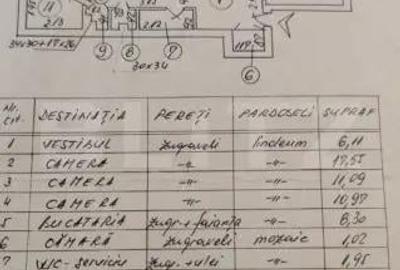 11
213
212
34x30+17x26
9
8
7
30x34
6
Nr. crt. DESTINAȚIA PEREȚI PARDOSELI SUPRAF
1 VESTIBUL zugraveli linoleum 6,11
2 CAMERA -"- -"- 17,55
3 CAMERA -"- -"- 11,09
4 CAMERA -"- -"- 10,97
5 BUCATARIA zugr.+faianța -"- 8,30
6 CĂMARĂ zugraveli mozaic 1,02
7 W.C-serviciu zugr.+ulei -"- 1,95